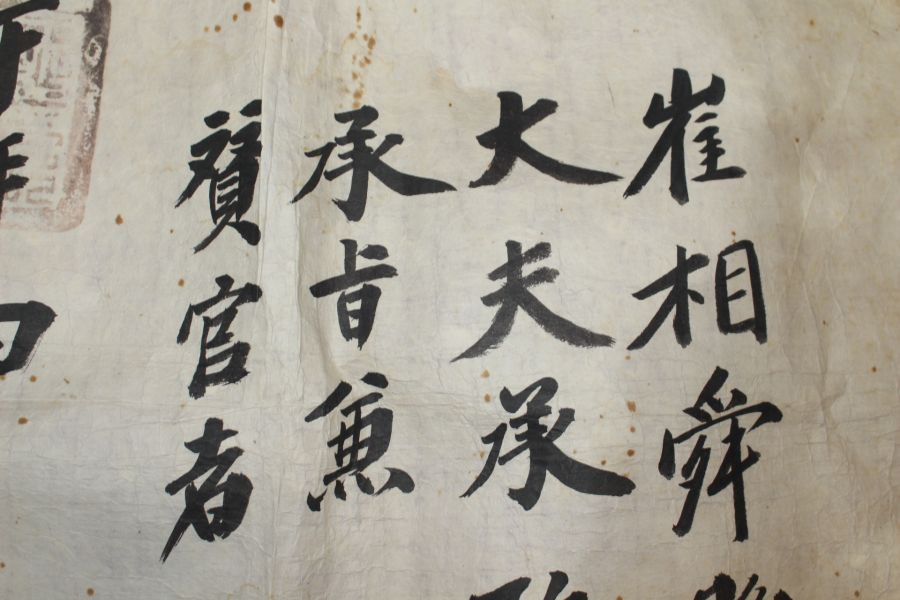 崔相舜
大夫承
承旨兼
贊官者